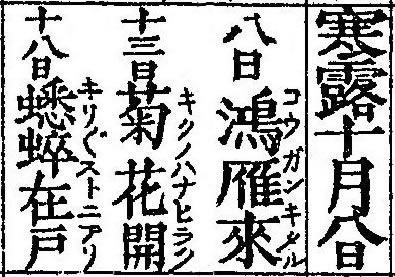 寒露十月八日
八日 鴻雁來
コウガンキタル
十三日 菊花開
キクノハナヒラク
十八日 蟋蟀在戸
キリ〴〵ストニアリ